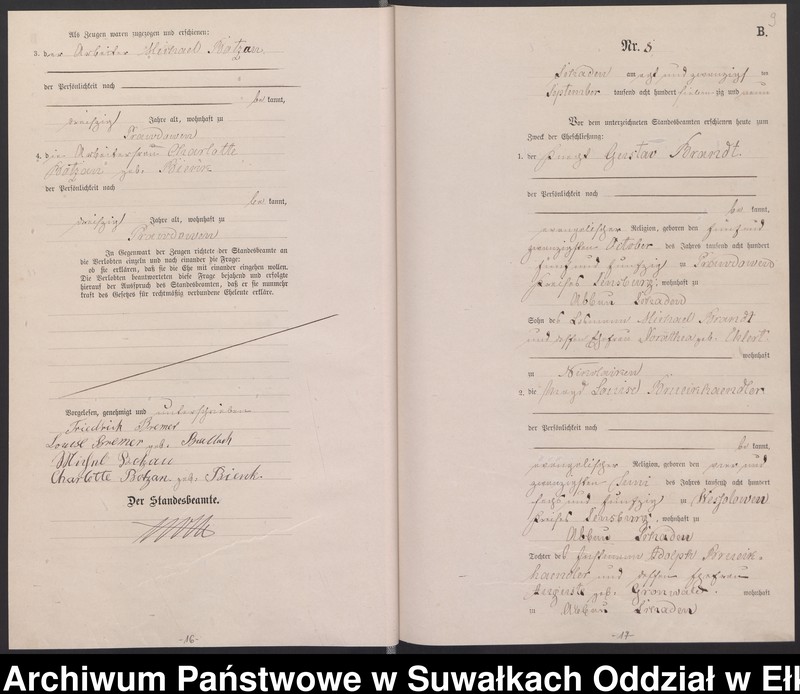 Als Zeugen waren zugezogen und erschienen:
3. der Arbeiter Michael Botzan
der Persönlichkeit nach
be kannt,
dreißig Jahre alt, wohnhaft zu
Prawdowen
4. die Arbeiterfrau Charlotte
Botzan geb. Bienk
der Persönlichkeit nach
be kannt,
dreißig Jahre alt, wohnhaft zu
Prawdowen
In Gegenwart der Zeugen richtete der Standesbeamte an
die Verlobten einzeln und nach einander die Frage:
ob sie erklären, daß sie die Ehe mit einander eingehen wollen.
Die Verlobten beantworteten diese Frage bejahend und erfolgte
hierauf der Ausspruch des Standesbeamten, daß er sie nunmehr
kraft des Gesetzes für rechtmäßig verbundene Eheleute erkläre.
Vorgelesen, genehmigt und unterschrieben
Friedrich Bremer
Louise Bremer geb.
Charlotte Botzan geb. Bienk.
Der Standesbeamte.
-16-
9
B.
Nr. 5
am acht und zwanzigst en
September tausend acht hundert sieben zig und neun
Vor dem unterzeichneten Standesbeamten erschienen heute zum
Zweck der Eheschließung:
1. der Knecht Gustav Brandt
der Persönlichkeit nach
be kannt,
evangelischer Religion, geboren den fünf und
zwanzigsten October des Jahres tausend acht hundert
fünf und funfzig zu Prawdowen
Kreises Sensburg, wohnhaft zu
Abbau
Sohn des Losmann Michael Brandt
und dessen Ehefrau Dorothea geb.
wohnhaft
in Nicolaiken
2. die Magd Louise Brueinhaendler
der Persönlichkeit nach
be kannt,
evangelischer Religion, geboren den vier und
zwanzigsten Juni des Jahres tausend acht hundert
sechs und funfzig zu Wessolowen
Kreises Sensburg, wohnhaft zu
Abbau
Tochter des Adolph Bruein-
haendler und dessen Ehefrau
Auguste geb. Gronwald. wohnhaft
in Abbau
-17-
Archiwum Państwowe w Suwałkach Oddział w Eł